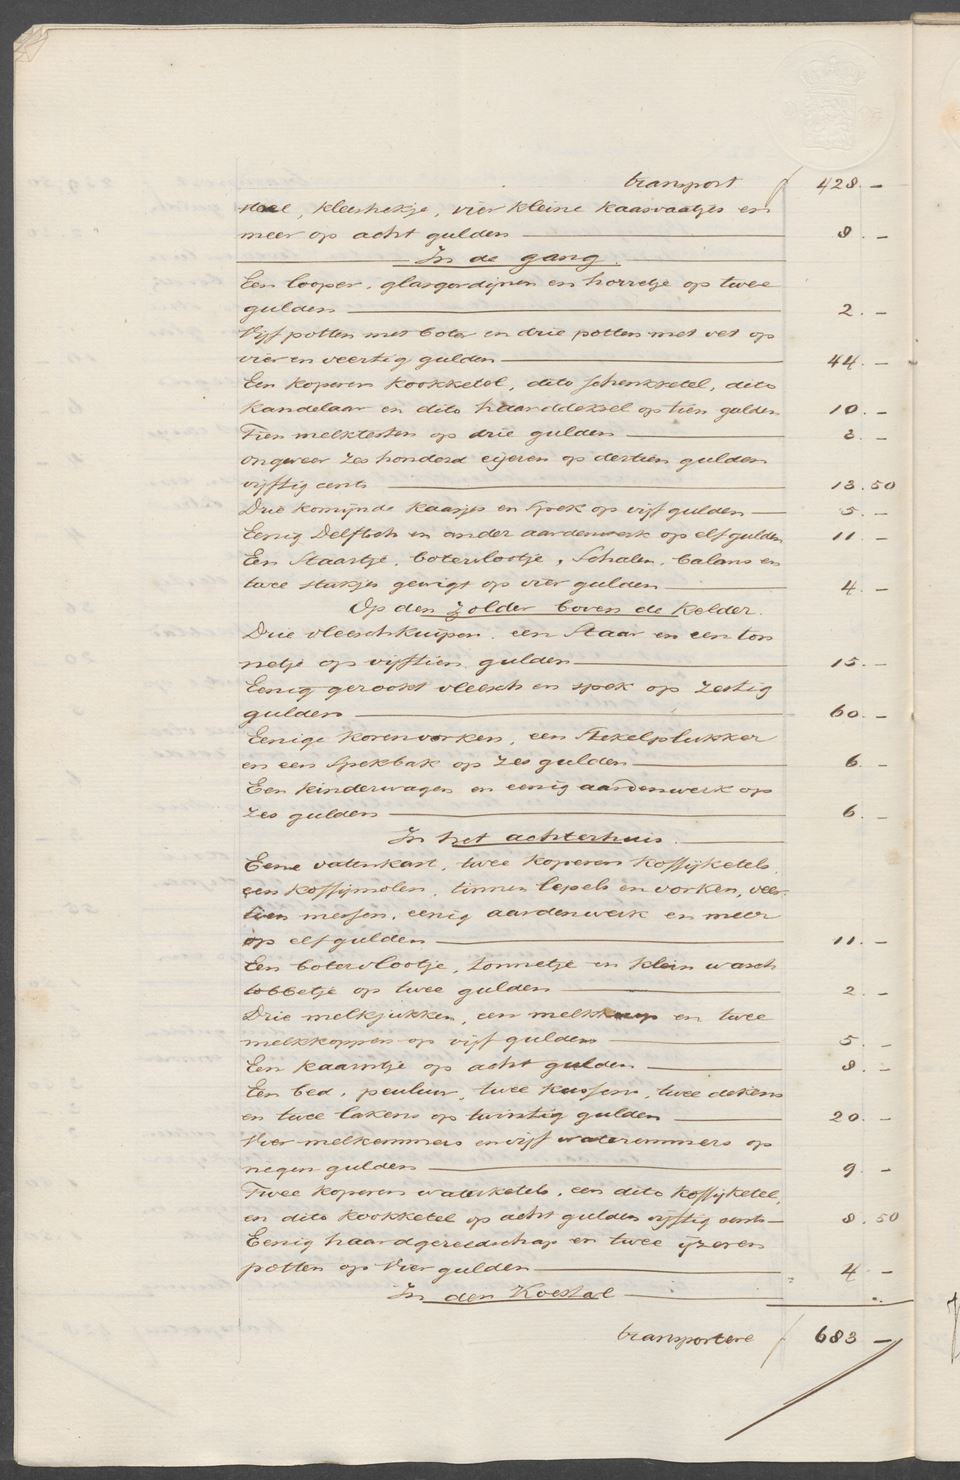 transport f 428. -
stoel, kleerhekje, vier kleine kaasvaatjes en
meer op acht gulden 8. -
In de gang.
Een looper, glasgordijnen en horretje op twee
gulden 2. -
Vijf potten met boter en drie potten met vet op
vier en veertig gulden 44. -
Een koperen kookketel, dito schenkketel, dito
kandelaar en dito haarddeksel op tien gulden 10. -
Tien melktesten op drie gulden 3. -
ongeveer zes honderd eijeren op dertien gulden
vijftig cents 13.50
Drie komijnde kaasjes en spek op vijf gulden 5. -
Eenig Delftsch en ander aardenwerk op elf gulden 11. -
Een Staartje, botervlootje, Schalen, balans en
twee stukjes gewigt op vier gulden 4. -
Op den zolder boven de kelder.
Drie vleeschkuipen, een Staar en een ton
netje op vijftien gulden 15. -
Eenig gerookt vleesch en spek op zestig
gulden 60. -
Eenige korenvorken, een Stekelplukker
en een Spekbak op zes gulden 6. -
Een kinderwagen en eenig aardenwerk op
zes gulden 6. -
In het achterhuis.
Eene vatenkast, twee koperen koffijketels,
een koffijmolen, tinnen lepels en vorken, veer
tien messen, eenig aardenwerk en meer
op elf gulden 11. -
Een botervlootje, tonnetje en klein wasch
tobbetje op twee gulden 2. -
Drie melkjukken, een melkkuip en twee
melkkoppen op vijf gulden 5. -
Een kaarntje op acht gulden 8. -
Een bed, peuluw, twee kussens, twee dekens
en twee lakens op twintig gulden 20. -
Vier melkemmers en vijf wateremmers op
negen gulden 9. -
Twee koperen waterketels, een dito koffijketel,
en dito kookketel op acht gulden vijftig cents 8.50
Eenig haardgereedschap en twee ijzeren
potten op vier gulden 4. -
In den Koestal
transportere f 683 -